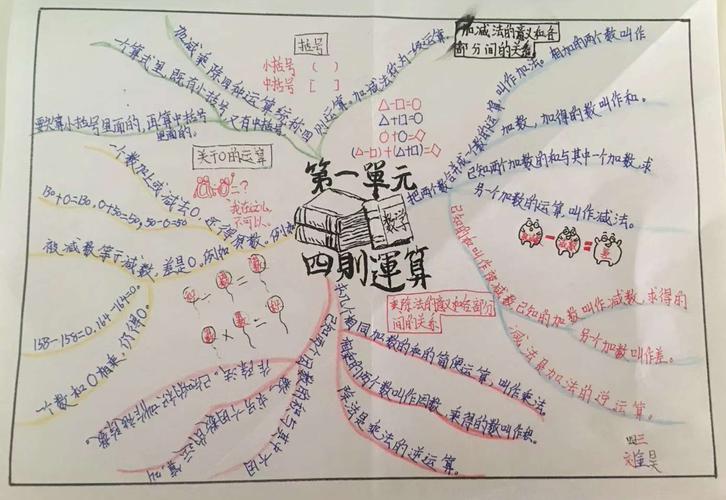 第一單元
四則運算
数学
括号
小括号（ ）
中括号［ ］
加减乘除四种运算统称四则运算。加减法称为一级运算。
一个算式里，既有小括号，又有中括号，
要先算小括号里面的，再算中括号
里面的。
关于0的运算
一个数加上或减去0，还得原数。例如
130+0=130，0+50=50，50-0=50
被减数等于减数，差是0。例如
158-158=0，164-164=0。
一个数和0相乘，仍得0。
我在这儿
不可以。
加减法的意义和各
部分间的关系
△-□=○
△+□=○
○+○=◇
(△-□)+(△+□)=◇
把两个数合并成一个数的运算，叫作加法。相加的两个数叫作
加数，加得的数叫作和。
已知两个加数的和与其中一个加数，求
另一个加数的运算，叫作减法。
已知的和叫作被减数，已知的加数叫作减数，求得的
另一个加数叫作差。
减法是加法的逆运算。
乘除法的意义和各部分
间的关系
求几个相同加数的和的简便运算，叫作乘法。
相乘的两个数叫作因数，乘得的数叫作积。
除法是乘法的逆运算。
已知两个因数的积与其中一个因
数，求另一个因数的运算，叫
作除法。已知的积叫作被除数。
四三